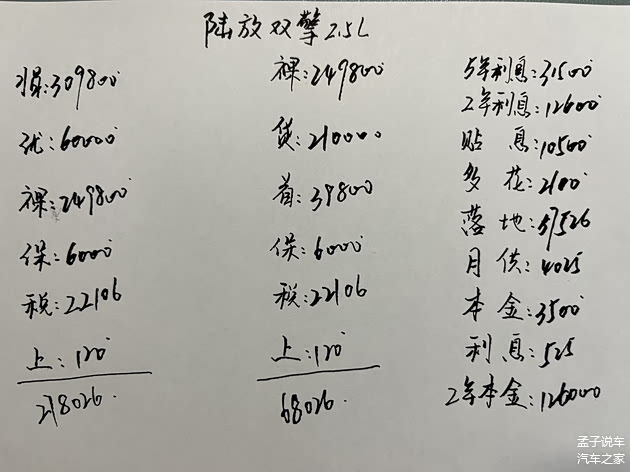 陆放双擎2.5L
:309800
优:60000
裸:249800
保:6000
税:22106
上:120
278026.
裸:249800
贷:210000
首:39800
保:6000
税:22106
上:120
68026.
5年利息:31500
2年利息:12600
贴息:10500
多花:2100
落地:57526
月供:4025
本金:3500
利息:525
2年本金:126000
孟子说车
汽车之家